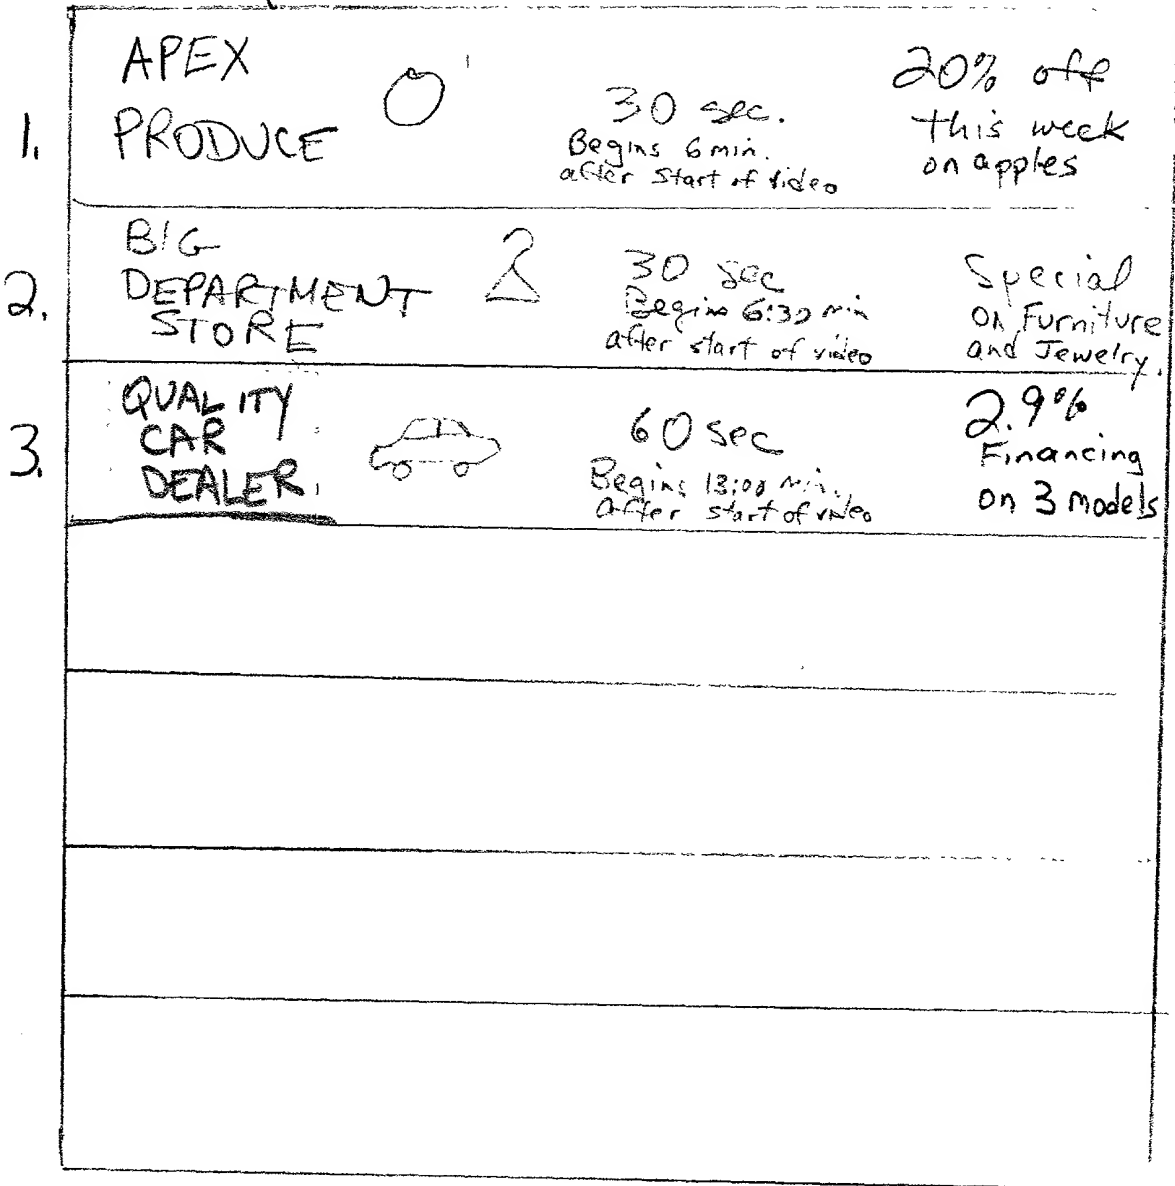 1.
APEX
PRODUCE
30 sec.
Begins 6 min.
after Start of video
20% off
this week
on apples
2.
BIG
DEPARTMENT
STORE
30 sec
Begins 6:30 min
after start of video
Special
on Furniture
and Jewelry.
3.
QUALITY
CAR
DEALER.
60 sec
Begins 13:00 min.
After start of video
2.9%
Financing
on 3 models